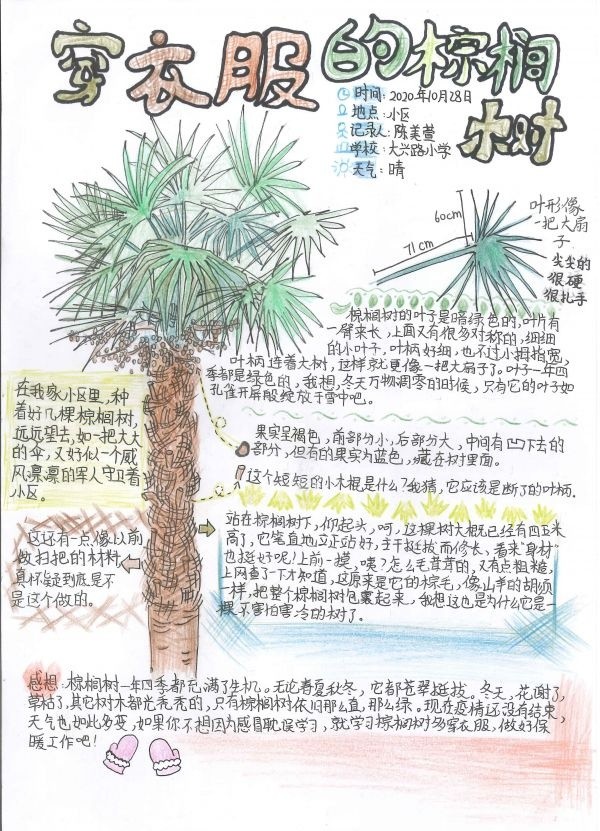 穿衣服的棕榈树
时间：2020年10月28日
地点：小区
记录人：陈美萱
学校：大兴路小学
天气：晴
60cm
71cm
叶形像
一把大扇
子
尖尖的
很硬
很扎手
棕榈树的叶子是暗绿色的，叶片有
一臂来长，上面又有很多对称的，细细
的小叶子，叶柄好细，也不过小拇指宽，
叶柄连着大树，这样就更像一把大扇子了。叶子一年四
季都是绿色的，我想，冬天万物凋零的时候，只有它的叶子如
孔雀开屏般绽放于雪中吧。
在我家小区里，种
着好几棵棕榈树，
远远望去，如一把大大
的伞，又好似一个威
风凛凛的军人守卫着
小区。
果实呈褐色，前部分小，后部分大，中间有凹下去的
部分，但有的果实为蓝色，藏在树里面。
这个短短的小木棍是什么？我猜，它应该是断了的叶柄.
这还有一点像以前
做扫把的材料，
真怀疑到底是不
是这个做的。
站在棕榈树下，仰起头，呵，这棵树大概已经有四五米
高了，它笔直地立正站好，主干挺拔而修长、看来“身材”
也挺好呢！上前一摸，咦？怎么毛茸茸的，又有点粗糙，
上网查了一下才知道，这原来是它的棕毛，像山羊的胡须
一样，把整个棕榈树包裹起来，我想这也是为什么它是一
棵不害怕寒冷的树了.
感想：棕榈树一年四季都充满了生机。无论春夏秋冬，它都苍翠挺拔。冬天，花谢了，
草枯了，其它树木都光秃秃的，只有棕榈树依旧那么直，那么绿。现在疫情还没有结束，
天气也如此多变，如果你不想因为感冒耽误学习，就学习棕榈树多穿衣服，做好保
暖工作吧！